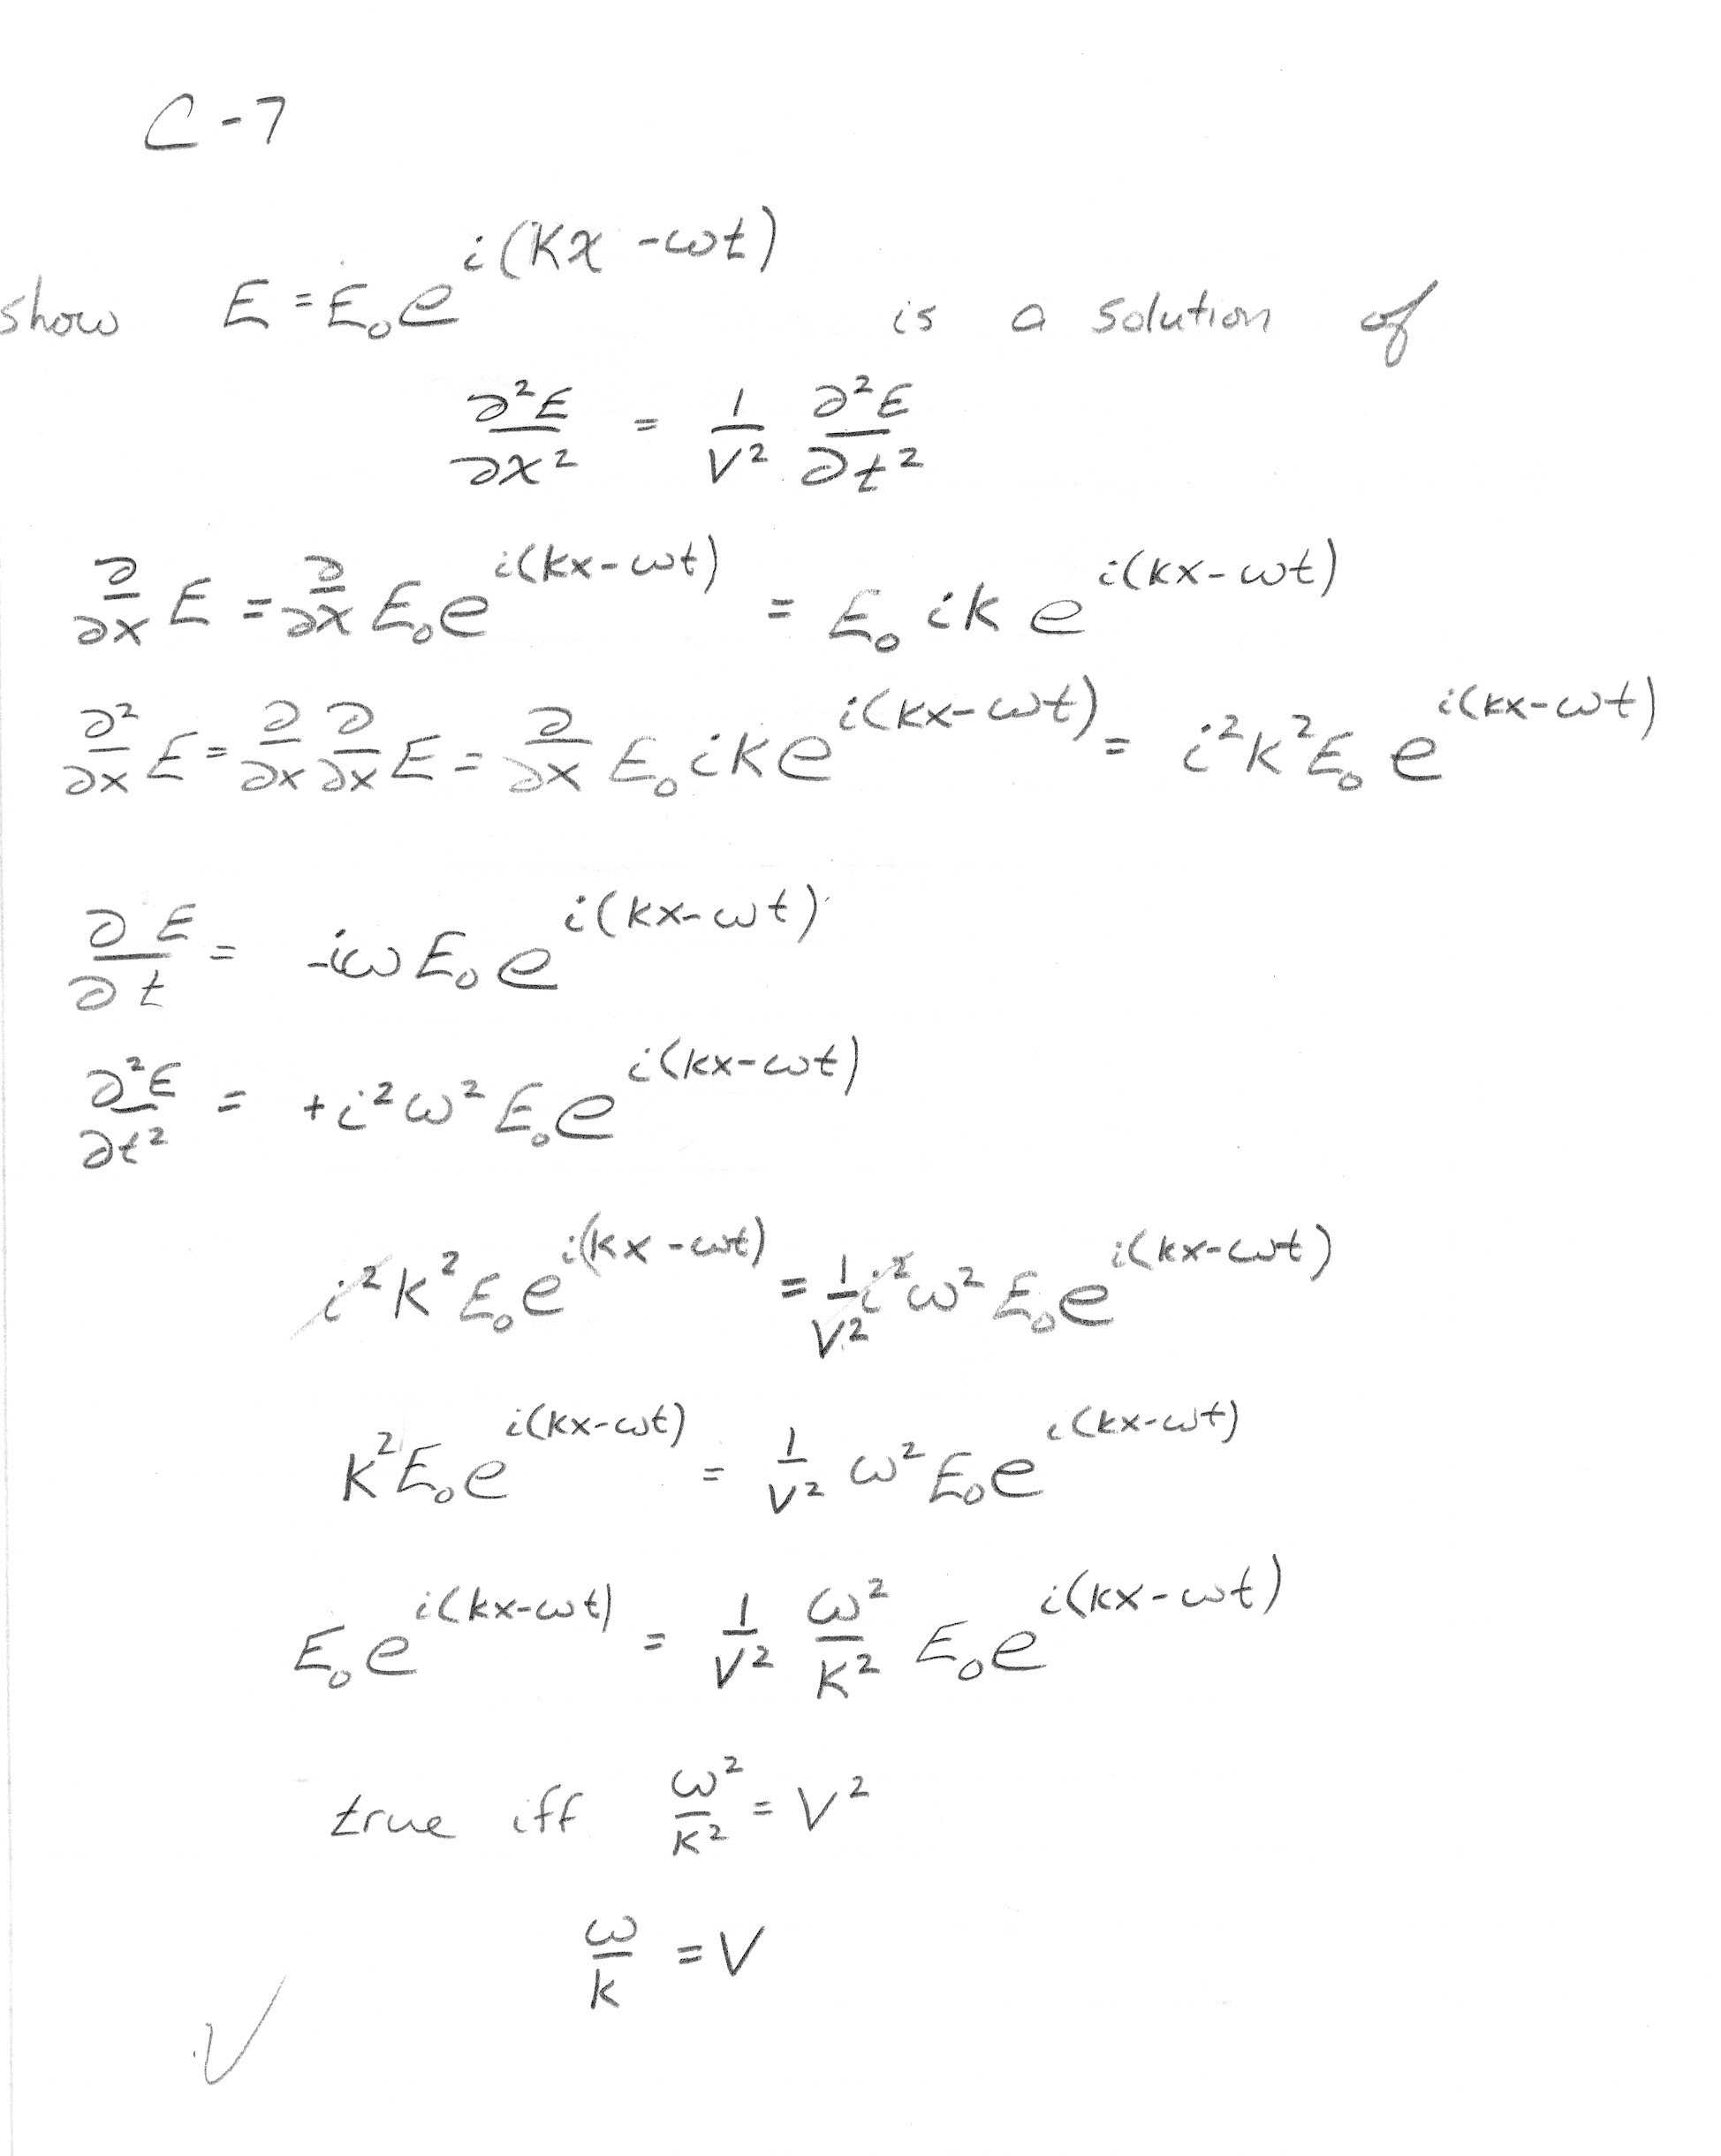 C-7
show E = E₀e^{i(kx - ωt)} is a solution of
∂²E/∂x² = 1/V² ∂²E/∂t²
∂/∂x E = ∂/∂x E₀e^{i(kx-ωt)} = E₀ ik e^{i(kx-ωt)}
∂²/∂x E = ∂/∂x ∂/∂x E = ∂/∂x E₀ ik e^{i(kx-ωt)} = i²k²E₀ e^{i(kx-ωt)}
∂E/∂t = -iω E₀ e^{i(kx-ωt)}
∂²E/∂t² = +i²ω² E₀e^{i(kx-ωt)}
i²k²E₀e^{i(kx-ωt)} = 1/V² i²ω² E₀e^{i(kx-ωt)}
k²E₀e^{i(kx-ωt)} = 1/V² ω²E₀e^{i(kx-ωt)}
E₀e^{i(kx-ωt)} = 1/V² ω²/k² E₀e^{i(kx-ωt)}
true iff ω²/k² = V²
ω/k = V
✓